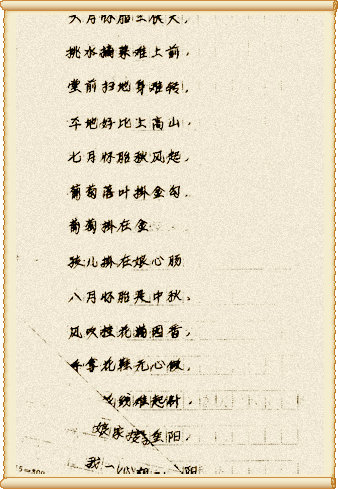 六月怀胎三伏天,
挑水摘菜难上前,
堂前扫地身难转,
平地好比上高山,
七月怀胎秋风起,
葡萄落叶掛金勾,
葡萄掛在金
孩儿掛在娘心肠
八月怀胎是中秋,
风吹桂花满园香,
手拿花鞋无心做,
难起针,
娘家接重阳,
我一心想 一 阳